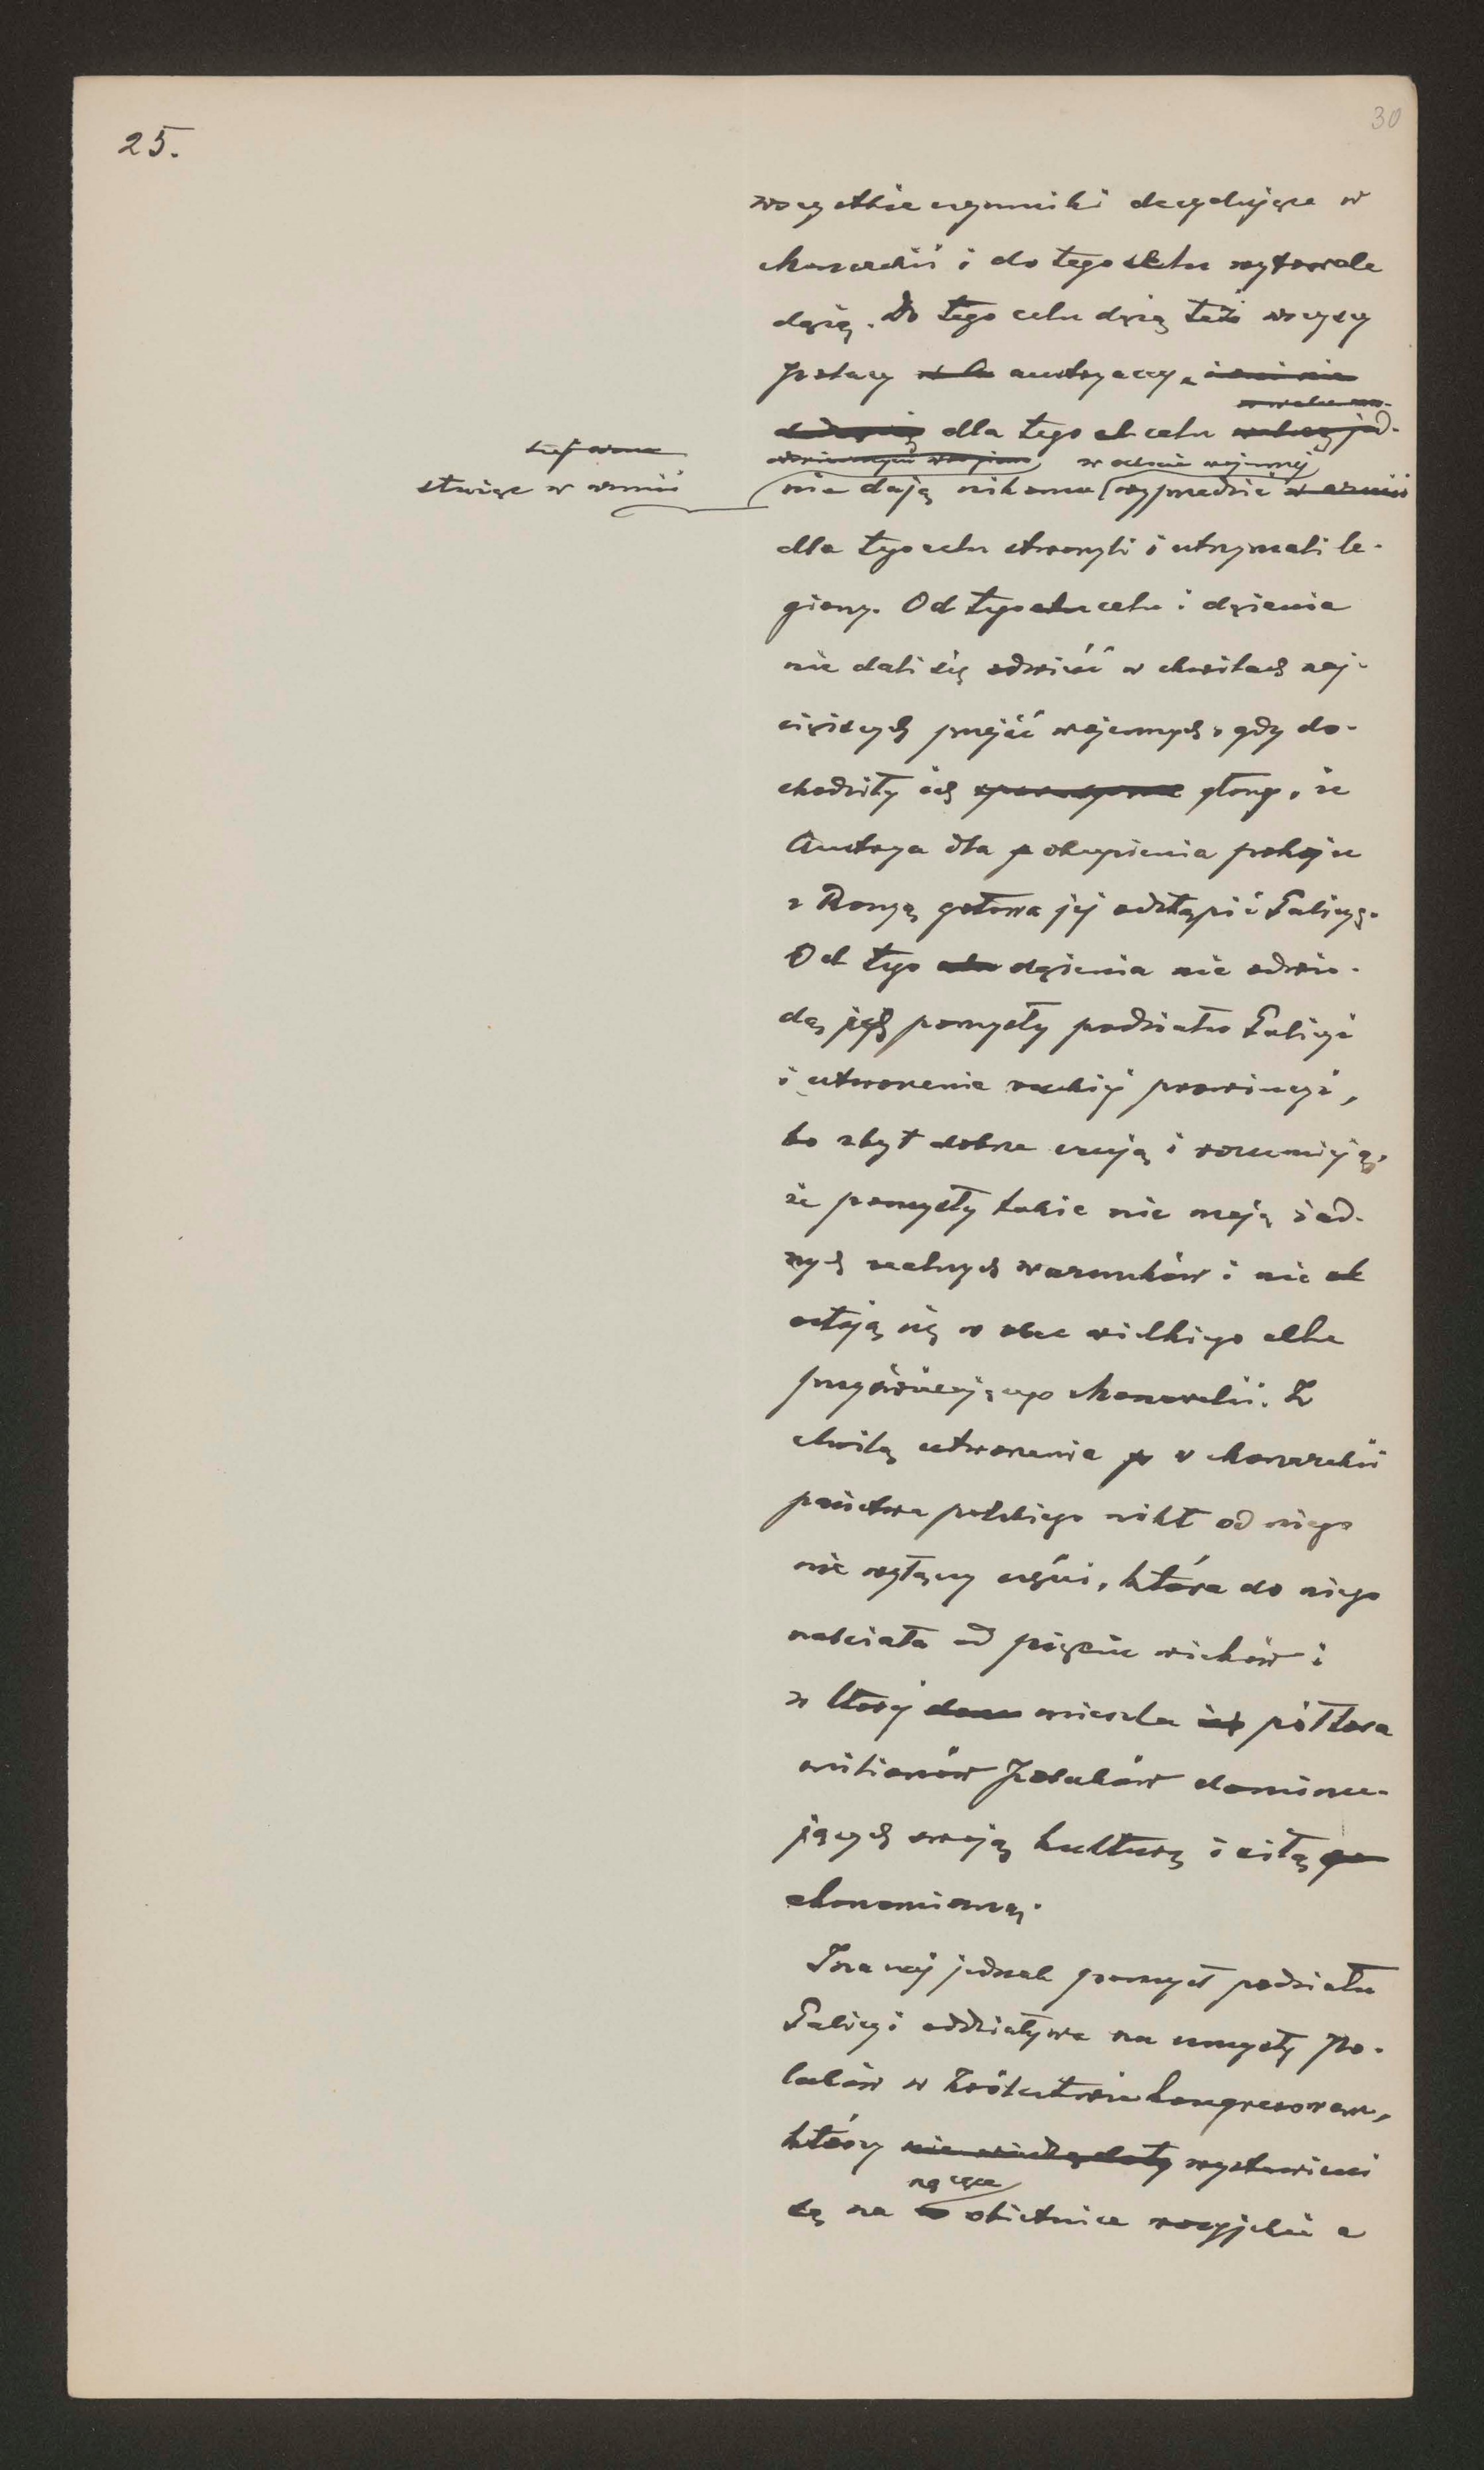 25.
30
wszystkie czynniki decydujące w
Monarchii i do tego celu wytrwale
dążą. Do tego celu dążą też wszyscy
Polacy austryaccy,
dla tego celu
stojąc w armii
w ochocie wojennej
nie dają nikomu wyprzedzić w armii
dla tego celu stworzyli i utrzymali le-
giony. Od tego celu i dążenia
nie dali się odwieść w chwilach naj-
cięższych przejść wojennych, gdy do-
chodziły ich głosy, że
Austrya dla okupienia pokoju
z Rosyą gotowa jej odstąpić Galicyę.
Od tego dążenia nie odwio-
dą ich pomysły podziału Galicyi
i utworzenia ruskiej prowincyi,
bo zbyt dobrze czują i rozumieją,
że pomysły takie nie mają żad-
nych realnych warunków i nie
ostoją się w obec wielkiego celu
przyświecającego Monarchii. Z
chwilą utworzenia w Monarchii
państwa polskiego nikt od niego
nie wyłączy części, która do niego
należała od pięciu wieków i
w której mieszka półtora
milionów Polaków dominu-
jących swoją kulturą i siłą
ekonomiczną.
Inaczej jednak pomysł podziału
Galicyi oddziaływa na umysły Po-
laków w Królestwie Kongresowem,
którzy wystawieni
są na nęcące obietnice rosyjskie a